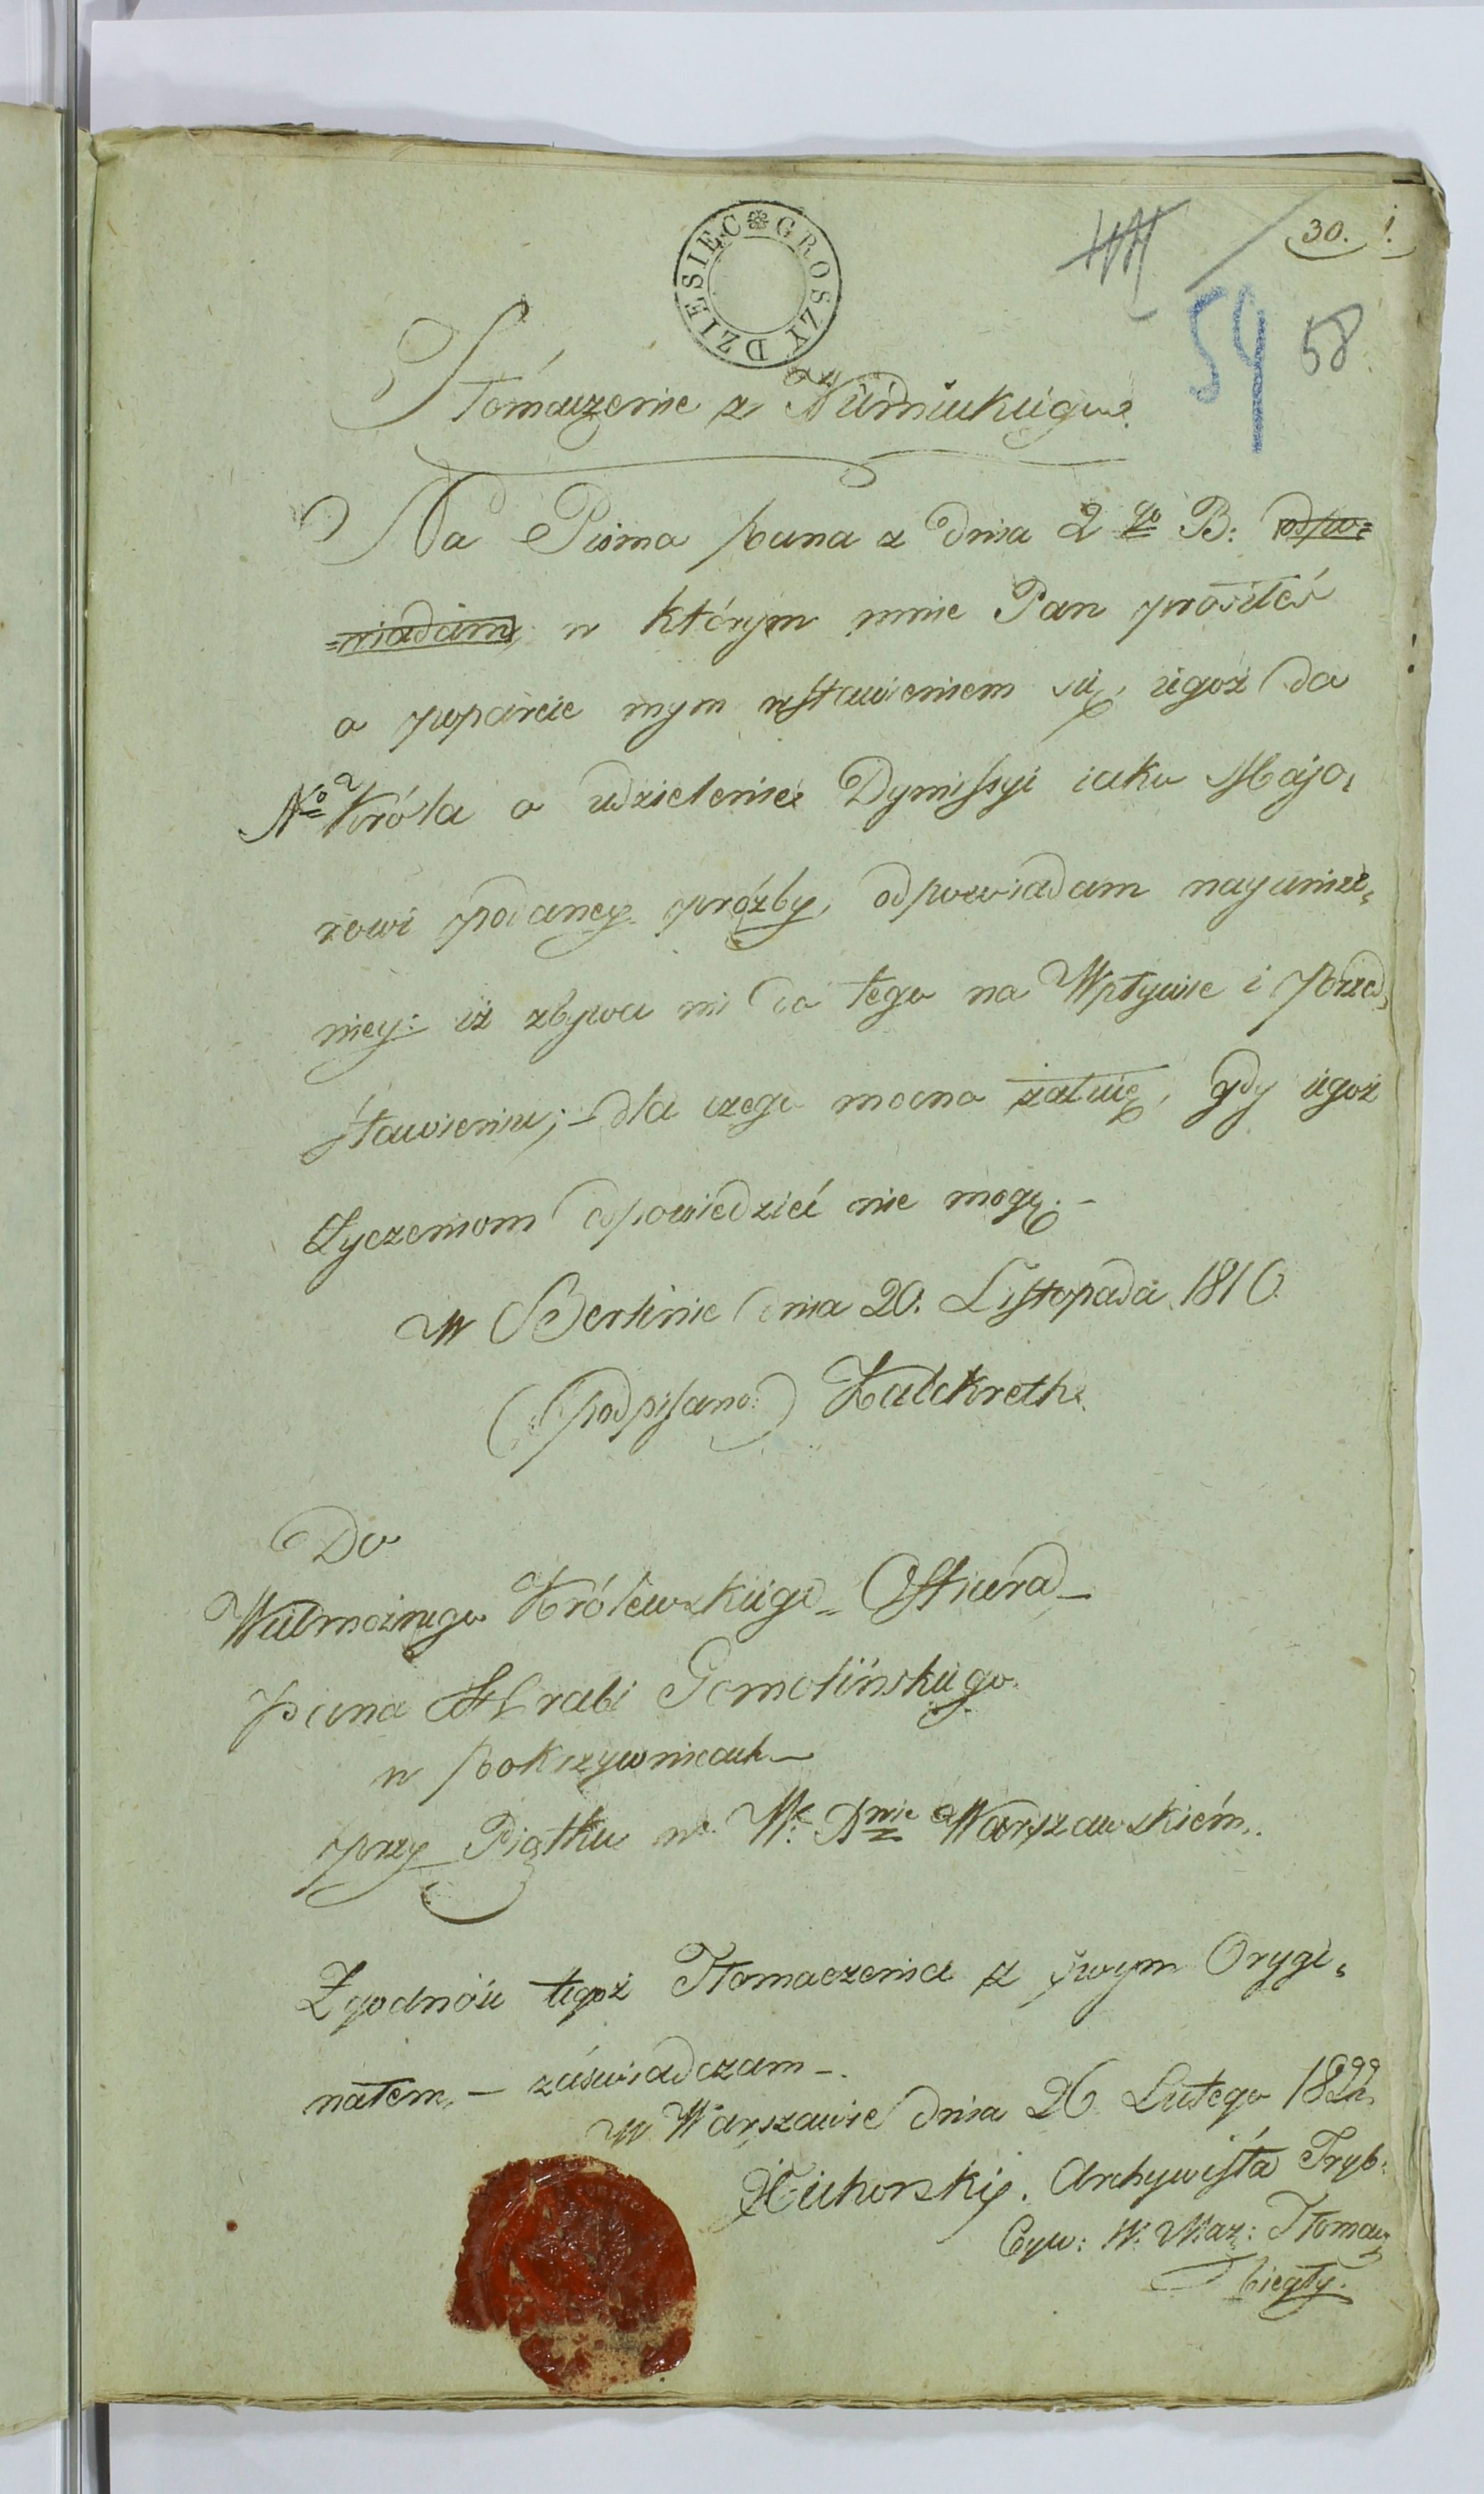 30. 1.
59 58
DZIESIĘC GROSZY
Tłómaczenie z Niemieckiego
Na Pismo Pana z dnia 2go B: odpo=
=wiadam, w którym mnie Pan prosiłeś
o poparcie mym wstawieniem się, iegoż do
Nº Króla o udzielenie Dymissyi iako Majo,
rowi podaney prózby, odpowiadam nayuniże,
niey: iż zbywa mi do tego na Wpływie i Przed,
stawieniu; – dla czego mocno żałuię, gdy iegoż
Życzeniom odpowiedzieć nie mogę. –
w Berlinie dnia 20. Listopada 1810
(podpisano) Kalckreth
Do
Wielmożnego Królewskiego Officera –
Pana Hrabi Gomolińskiego
w Pokrzywnicach –
przy Piątku w W. Xnie Warszawskiém.
Zgodność tegoż Tłomaczenia z swym Orygi,
nałem, – zaświadczam –.
w Warszawie dnia 26 Lutego 1822
Archywista Tryb:
Cyw: W. Maz: Tłomacz
biegły.